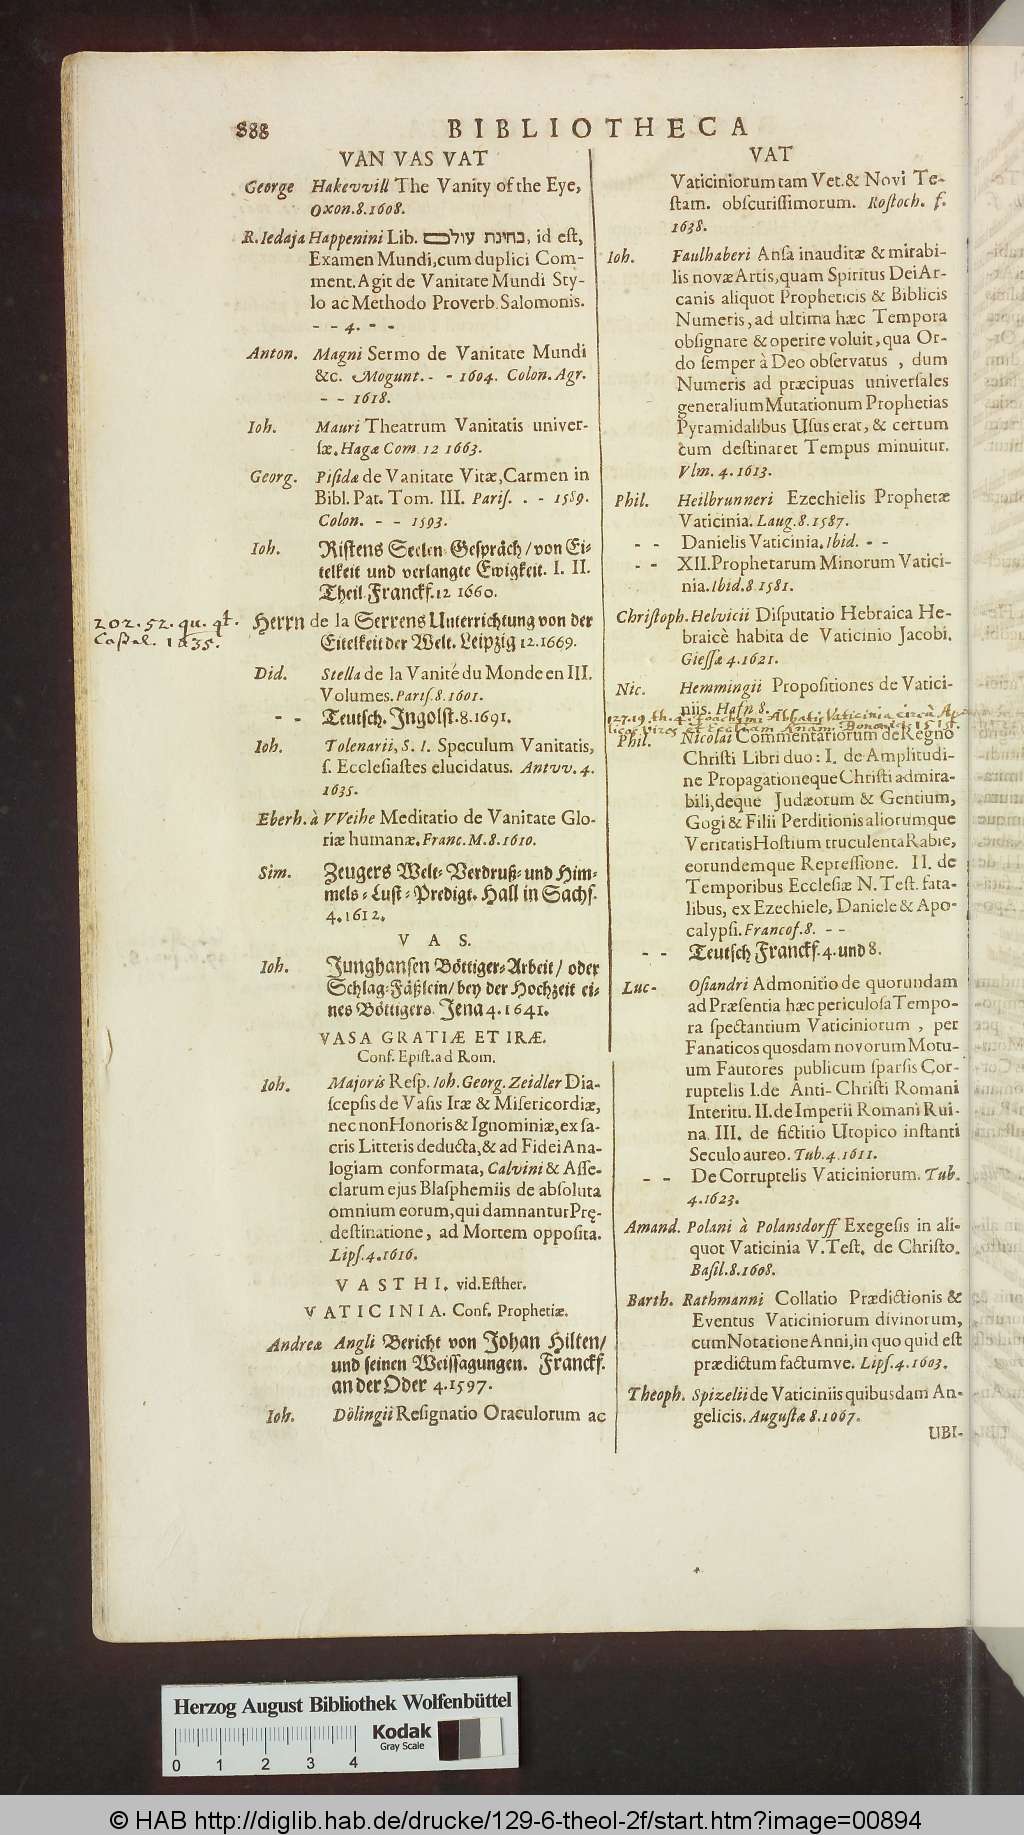 888
BIBLIOTHECA
VAN VAS VAT
George Hakevvill The Vanity of the Eye,
Oxon. 8. 1608.
R. Iedaja Happenini Lib. בחינת עולם, id est,
Examen Mundi, cum duplici Com-
ment. Agit de Vanitate Mundi Sty-
lo ac Methodo Proverb. Salomonis.
- - 4. - -
Anton. Magni Sermo de Vanitate Mundi
&c. Mogunt. - - 1604. Colon. Agr.
- - 1618.
Ioh. Mauri Theatrum Vanitatis univer-
sæ. Hagæ Com 12 1663.
Georg. Pisidæ de Vanitate Vitæ, Carmen in
Bibl. Pat. Tom. III. Paris. . - 1589.
Colon. - - 1593.
Ioh. Ristens Seelen-Gespräch / von Ei-
telkeit und verlangte Ewigkeit. I. II.
Theil. Franckf. 12 1660.
202. 52. qu. qt.
Castel. 1635.
Herrn de la Serrens Unterrichtung von der
Eitelkeit der Welt. Leipzig 12. 1669.
Did. Stella de la Vanité du Monde en III.
Volumes. Paris. 8. 1601.
- - Teutsch. Ingolst. 8. 1691.
Ioh. Tolenarii, S. I. Speculum Vanitatis,
s. Ecclesiastes elucidatus. Antvv. 4.
1635.
Eberh. à VVeihe Meditatio de Vanitate Glo-
riæ humanæ. Franc. M. 8. 1610.
Sim. Zeugers Welt-Verdruß- und Him-
mels-Lust-Predigt. Hall in Sachs.
4. 1612.
V A S.
Ioh. Junghansen Böttiger-Arbeit / oder
Schlag-Fäßlein / bey der Hochzeit ei-
nes Böttigers. Jena 4. 1641.
VASA GRATIÆ ET IRÆ.
Conf. Epist. ad Rom.
Ioh. Majoris Resp. Ioh. Georg. Zeidler Dia-
scepsis de Vasis Iræ & Misericordiæ,
nec non Honoris & Ignominiæ, ex sa-
cris Litteris deducta, & ad Fidei Ana-
logiam conformata, Calvini & Asse-
clarum ejus Blasphemiis de absoluta
omnium eorum, qui damnantur Prę-
destinatione, ad Mortem opposita.
Lips. 4. 1616.
VASTHI. vid. Esther.
VATICINIA. Conf. Prophetiæ.
Andreæ Angli Bericht von Johan Hilten /
und seinen Weissagungen. Franckf.
an der Oder 4. 1597.
Ioh. Dölingii Resignatio Oraculorum ac
VAT
Vaticiniorum tam Vet. & Novi Te-
stam. obscurissimorum. Rostoch. f.
1638.
Ioh. Faulhaberi Ansa inauditæ & mirabi-
lis novæ Artis, quam Spiritus Dei Ar-
canis aliquot Propheticis & Biblicis
Numeris, ad ultima hæc Tempora
obsignare & operire voluit, qua Or-
do semper à Deo observatus, dum
Numeris ad præcipuas universales
generalium Mutationum Prophetias
Pyramidalibus Usus erat, & certum
cum destinaret Tempus minuitur.
Vlm. 4. 1613.
Phil. Heilbrunneri Ezechielis Prophetæ
Vaticinia. Laug. 8. 1587.
- - Danielis Vaticinia. Ibid. - -
- - XII. Prophetarum Minorum Vatici-
nia. Ibid. 8 1581.
Christoph. Helvicii Disputatio Hebraica He-
braicè habita de Vaticinio Jacobi.
Giessæ 4. 1621.
Nic. Hemmingii Propositiones de Vatici-
niis. Hafn 8. -
127. 19. th. 4. Joachimi Abbatis Vaticinia circà Apo
licos Viros et Eccl Rom. Bononia, 1515.
Phil. Nicolai Commentariorum de Regno
Christi Libri duo: I. de Amplitudi-
ne Propagationeque Christi admira-
bili, deque Judæorum & Gentium,
Gogi & Filii Perditionis aliorumque
Veritatis Hostium truculenta Rabie,
eorundemque Repressione. II. de
Temporibus Ecclesiæ N. Test. fata-
libus, ex Ezechiele, Daniele & Apo-
calypsi. Francof. 8. - -
- - Teutsch Franckf. 4. und 8.
Luc- Osiandri Admonitio de quorundam
ad Præsentia hæc periculosa Tempo-
ra spectantium Vaticiniorum, per
Fanaticos quosdam novorum Motu-
um Fautores publicum sparsis Cor-
ruptelis I. de Anti-Christi Romani
Interitu. II. de Imperii Romani Rui-
na. III. de fictitio Utopico instanti
Seculo aureo. Tub. 4. 1611.
- - De Corruptelis Vaticiniorum. Tub.
4. 1623.
Amand. Polani à Polansdorff Exegesis in ali-
quot Vaticinia V. Test. de Christo.
Basil. 8. 1608.
Barth. Rathmanni Collatio Prædictionis &
Eventus Vaticiniorum divinorum,
cum Notatione Anni, in quo quid est
prædictum factumve. Lips. 4. 1603.
Theoph. Spizelii de Vaticiniis quibusdam An-
gelicis. Augustæ 8. 1667.
UBI-
Herzog August Bibliothek Wolfenbüttel
Kodak
Gray Scale
0 1 2 3 4
© HAB http://diglib.hab.de/drucke/129-6-theol-2f/start.htm?image=00894